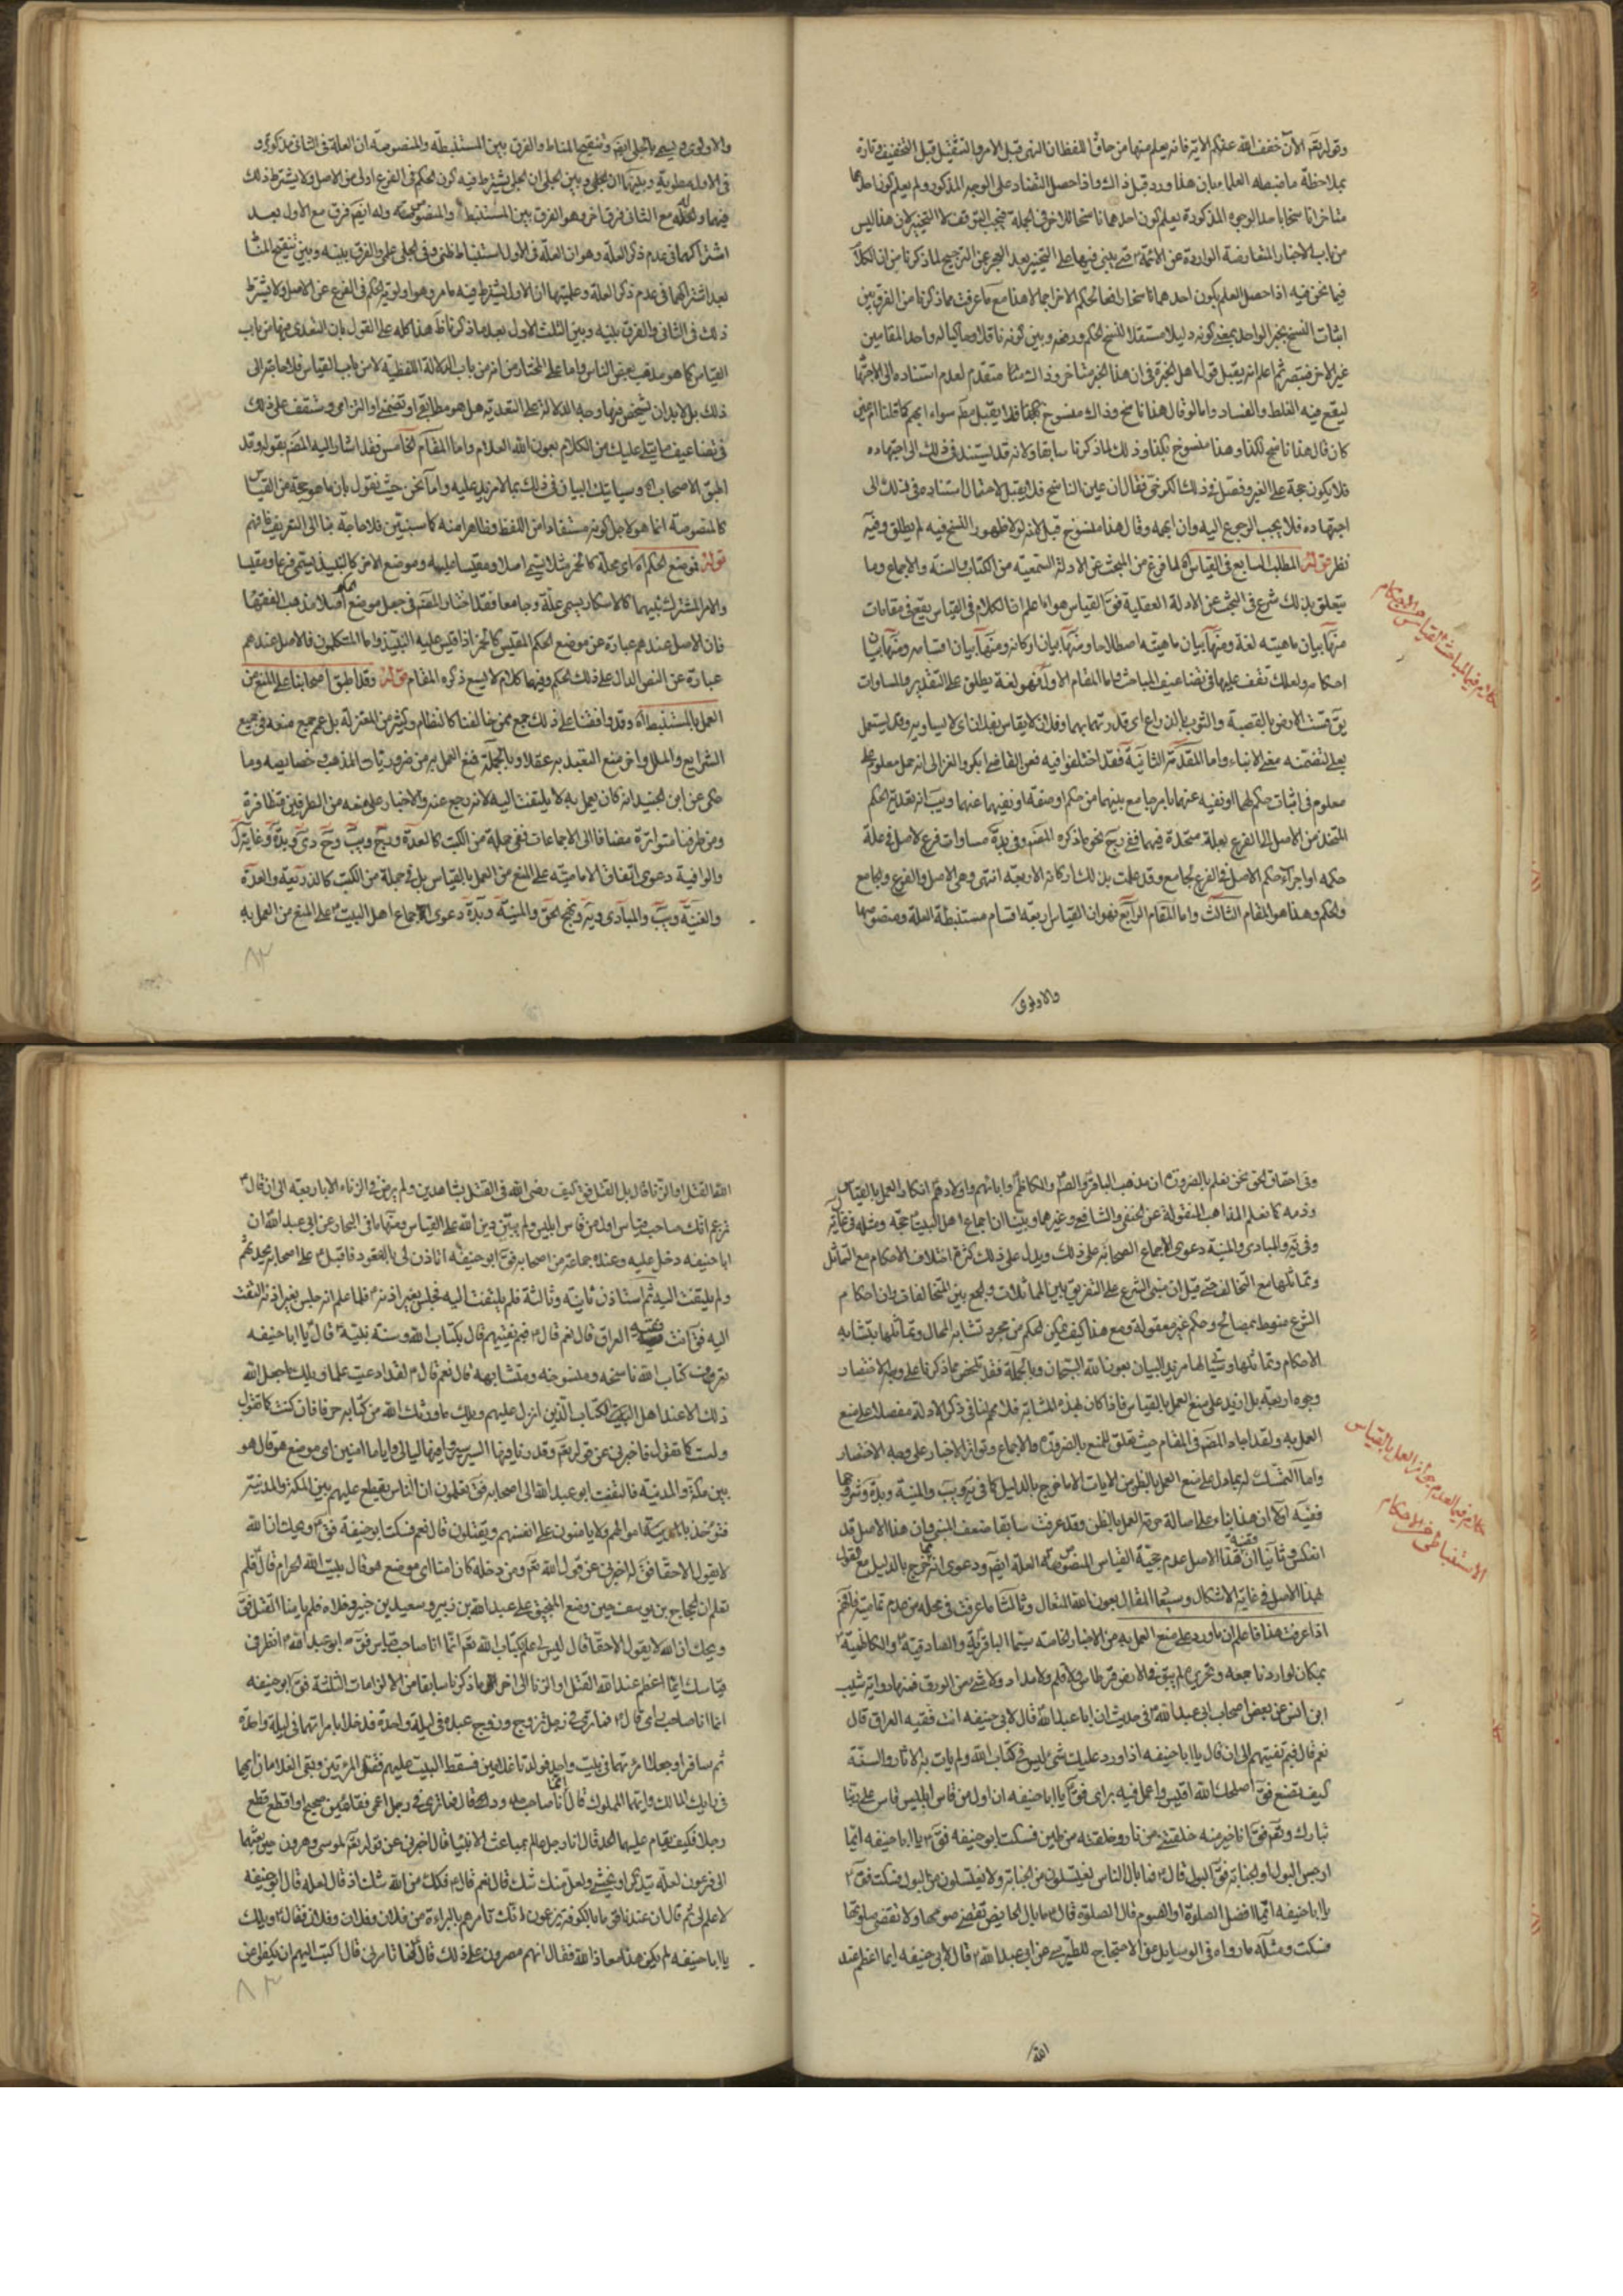 وقوله تعم الآن خفف الله عنكم الآية فانه يعلم منها من حاق اللفظ ان النهى قبل الامر والتثقيل قبل التخفيف وتارة
بملاحظة ما ضبطه العلماء بان هذا ورد قبل ذاك واذا حصل التضاد على الوجه المذكور ولم يعلم كون احدهما
متأخرا ناسخا باحد الوجوه المذكورة بعلم كون احدهما ناسخا للاخر فى الجملة فيجب التوقف لا التخيير لان هذا ليس
من باب الاخبار المتعارضة الواردة عن الائمة حتى يبنى فيها على التخيير بعد العجز عن الترجيح لما ذكرنا من ان الكلام
فيما نحن فيه اذا حصل العلم بكون احدهما ناسخا رافعا لحكم الاخر اجمالا هذا مع ما عرفت مما ذكرنا من الفرق بين
اثبات النسخ بخبر الواحد بمعنى كونه دليلا مستقلا لنسخ الحكم ورفعه وبين كونه ناقلا وحاكيا له واحد المقامين
غير الاخر فتبصر ثم اعلم انه يقبل قول اهل الخبرة فى ان هذا الخبر متأخر وذاك متقدم لعدم استناده الى الاجتهاد
ليقع فيه الغلط والفساد واما لو قال هذا ناسخ وذاك منسوخ فلا يقبل مطلقا سواء ابهم كما قلنا ام عين
كان قال هذا ناسخ لكذا وهذا منسوخ بكذا وذلك لما ذكرنا سابقا ولانه قد يستند فى ذلك الى اجتهاده
فلا يكون حجة على الغير وفصل فى ذلك الكرخى فقال ان عين الناسخ فلا يقبل لاحتمال استناده فى ذلك الى
اجتهاده فلا يجب الرجوع اليه وان ابهمه وقال هذا منسوخ قبل لانه لولا ظهور النسخ فيه لم يطلق وفيه
نظر قوله المطلب السابع فى القياس اه لما فرغ من البحث عن الادلة السمعية من الكتاب والسنة والاجماع وما
يتعلق بذلك شرع فى البحث عن الادلة العقلية فمن القياس هو اعلم ان الكلام فى القياس يقع فى مقامات
منها بيان ماهيته لغة ومنها بيان ماهيته اصطلاحا ومنها بيان اركانه ومنها بيان اقسامه ومنها بيان
احكامه ولعلك تقف عليها فى تضاعيف المباحث فاما المقام الاول فهو لغة يطلق على التقدير والمساوات
يق قست الارض بالقصبة والثوب بالذراع اى قدرتهما بهما وفلان لا يقاس بفلان اى لا يساويه وقد يستعمل
بعلى لتضمنه معنى الابتناء واما المقدمة الثانية فقد اختلفوا فيه فعن القاضى ابى بكر والغزالى انه حمل معلوم على
معلوم فى اثبات حكم لهما او نفيه عنهما بامر جامع بينهما من حكم او صفة او نفيهما عنهما
المتحد من الاصل الى الفرع بعلة متحدة فيهما وفى مساوات فرع لاصل فى علة
حكمه او اجراء حكم الاصل فى الفرع لجامع وقد علمت بذلك اركانه الاربعة انتهى وهى الاصل والفرع والجامع
والحكم وهذا هو المقام الثالث واما المقام الرابع فهو ان القياس اربعة اقسام مستنبطة العلة ومنصوصها
والاولوى
كلام فيما المباحث القياس والاحكام
والاولوى ويسمى بالجلى ايضا وتنقيح المناط والفرق بين المستنبطة والمنصوصة ان العلة فى الثانى مذكورة و
فى الاول مطوية وبينهما الجلى وبين الجلى ان الجلى يشترط فيه كون الحكم فى الفرع اولى من الاصل ولا يشترط ذلك
فيهما مع الثانى فرق اخر وهو الفرق بين المستنبط والمنصوصة وله ايضا فرق مع الاول بعد
اشتراكهما فى عدم ذكر العلة وهو ان العلة فى الاول استنباط ظنى وفى الجلى علمى والفرق بينه وبين تنقيح المناط
بعد اشتراكهما فى عدم ذكر العلة وعلميتها ان الاول يشترط فيه ما مر وهو اولوية الحكم فى الفرع عن الاصل ولا يشترط
ذلك فى الثانى والفرق بينه وبين الثلث الاول بعد ما ذكرنا ظ هذا كله على القول بان التعدى فيهما من باب
القياس كما هو مذهب بعض الناس واما على المختار من انه من باب الدلالة اللفظية لا من باب القياس فلا حاجة الى
ذلك بل لابد ان يشخص فيها وجه الدلالة على التعدية هل هو مطابقى او تضمنى او التزامى وستقف على ذلك
فى تضاعيف ما يتلى عليك من الكلام بعون الله العلام واما المقام الخامس فقد اشار اليه المص بقوله وقد
اطبق الاصحاب اه وسيأتيك البيان فى ذلك بما لا مزيد عليه واما نحن حيث نقول بان ما هو حجة من القياس
كالمنصوصة انما هو لاجل كونه مستفادا من اللفظ وظاهرا منه كما سنبين فلا حاجة بنا الى التعريف فافهم
قوله فموضع الحكم اه اى محله كالخمر مثلا يسمى اصلا ومقيسا عليه وموضع الاخر كالنبيذ يسمى فرعا ومقيسا
والامر المشترك بينهما كالاسكار يسمى علة وجامعا فقد اختار المص فى جعل موضع الحكم اصلا مذهب الفقهاء
فان الاصل عندهم عبارة عن موضع الحكم المقيس كالخمر اذا قيس عليه النبيذ واما المتكلمون فالاصل عندهم
عبارة عن النص الدال على ذلك الحكم وفيهما كلام لا يسع ذكره المقام قوله وقد اطبق اصحابنا على المنع من
العمل بالمستنبطة اه وقد وافقنا على ذلك جمع ممن خالفنا كالنظام وكثير من المعتزلة بل عم جمع منعه فى جميع
الشرايع والملل واخر منع التعبد به عقلا وبالجملة فمنع العمل به من ضروريات المذهب وخصايصه وما
حكى عن ابن الجنيد انه كان يعمل به لا يلتفت اليه لانه رجع عنه والاخبار على منعه من الطرفين متظافرة
ومن طرفنا متواترة مضافا الى الاجماعات ففى جملة من الكتب كالعدة
والوافية دعوى اتفاق الامامية على المنع من العمل بالقياس بل فى جملة من الكتب كالذريعة والعدة
والغنية والمبادى ونهج الحق والمنية دعوى اجماع اهل البيت على المنع من العمل به
٨٢
وفى احقاق الحق نحن نعلم بالضرورة ان مذهب الباقر والصادق والكاظم وابائهم واولادهم انكار العمل بالقياس
وذمه كما نعلم المذاهب المنقولة عن الحنفى والشافعى وغيرهما وبينا ان اجماع اهل البيت حجة ومثله فى
وفى والمبادى والمنية دعوى اجماع الصحابة على ذلك ويدل على ذلك كثرة اختلاف الاحكام مع التماثل
وتماثلها مع التخالف حتى قيل ان مبنى الشرع على التفريق بين المماثلات والجمع بين المتخالفات وان احكام
الشرع منوط بمصالح وحكم غير معقولة ومع هذا كيف يمكن الحكم من مجرد تشابه المحال وتماثلها بتشابه
الاحكام وتماثلها وسيأتى لهذا مزيد البيان بعون الله السبحان وبالجملة فقد تلخص مما ذكرنا على وجه الاختصار
وجوه اربعة بل ازيد على منع العمل بالقياس فاذا كان بهذه المثابة فلا يهمنا فى ذكر الادلة مفصلا على منع
العمل به ولقد اجاد المص فى المقام حيث تعلق للمنع بالضرورة والاجماع وتواتر الاخبار على وجه الاختصار
واما التمسك له بما دل على منع العمل بالظن من الايات الا ما خرج بالدليل كما فى والمنية
ففيه اولا ان هذا بناء على اصالة حرمة العمل بالظن وقد عرفت سابقا ضعف المبنى وان هذا الاصل قد
انعكس وثانيا ان قضية هذا الاصل عدم حجية القياس المنصوصة العلة ايضا ودعوى انه مما خرج بالدليل مع قول
بهذا الاصل فى غاية الاشكال وثالثا ما عرفت فى محله من عدم تمامية فافهم
اذا عرفت هذا فاعلم ان ما ورد على منع العمل به من الاخبار الخاصة سيما الباقرية والصادقية والكاظمية
بمكان لو اردنا جمعه وتحريره لم يبق فى الارض قرطاس ولا قلم ولا مداد ولا شىء من الورق فمنها رواية شبيب
ابن انس عن بعض اصحاب ابى عبد الله فى حديث ان ابا عبد الله قال لابى حنيفه انت فقيه العراق قال
نعم قال فبم تفتيهم الى ان قال يا ابا حنيفه اذا ورد عليك شىء ليس فى كتاب الله ولم يات به الاثار والسنة
كيف تصنع فق اصلحك الله اقيس واعمل فيه برائى فق يا ابا حنيفه ان اول من قاس ابليس قاس على ربنا
تبارك وتعم فق انا خير منه خلقتنى من نار وخلقته من طين فسكت ابو حنيفه فق يا ابا حنيفه ايما
ارجس البول او الجنابة فق البول قال فما بال الناس يغتسلون من الجنابة ولا يغتسلون من البول فسكت فق
يا ابا حنيفه ايما افضل الصلوة او الصوم قال الصلوة قال فما بال الحايض تقضى صومها ولا تقضى صلوتها
فسكت ومثله ما رواه فى الوسايل عن الاحتجاج للطبرسى عن ابى عبد الله قال لابى حنيفه ايما اعظم عند
الله
كلام فيما العدم جواز العمل بالقياس
الاستنباطى فى الاحكام
الله القتل او الزنا قال بل القتل فق فكيف رضى الله فى القتل بشاهدين ولم يرض فى الزناء الا باربعة الى ان قال
تزعم انك صاحب قياس اول من قاس ابليس ولم يبتن دين الله على القياس ومنها ما فى البحار عن ابى عبد الله ان
ابا حنيفه دخل عليه وعنده جماعة من اصحابه فق ابو حنيفه اتاذن لى بالقعود فاقبل على اصحابه يحدثهم
ولم يلتفت اليه ثم استاذن ثانية وثالثة فلم يلتفت اليه فجلس بغير اذنه فلما علم انه جلس بغير اذنه التفت
اليه فق انت فقيه العراق قال نعم قال فبم تفتيهم قال بكتاب الله وسنة نبيه قال يا ابا حنيفه
تعرف كتاب الله ناسخه ومنسوخه ومتشابهه قال نعم قال لقد ادعيت علما ويلك ما جعل الله
ذلك الا عند اهل الكتاب الذين انزل عليهم ويلك ما ورثك الله من كتابه حرفا فان كنت كما تقول
ولست كما تقول فاخبرنى عن قوله تعم وقدرنا فيها السير سيروا فيها ليالى واياما امنين اى موضع هو قال هو
بين مكة والمدينه فالتفت ابو عبد الله الى اصحابه فق تعلمون ان الناس يقطع عليهم بين المكة والمدينة
فتؤخذ اموالهم ولا يامنون على انفسهم ويقتلون قال نعم فسكت ابو حنيفة فق ويحك ان الله
لا يقول الا حقا فق له اخبرنى عن قول الله تعم ومن دخله كان امنا اى موضع هو قال بيت الله الحرام قال فلم
تعلم ان الحجاج بن يوسف حين وضع المنجنيق على عبد الله بن زبير وسعيد بن جبير وقتلاه فلم يامنا القتل فق
ويحك ان الله لا يقول الا حقا قال ليس لى علم بكتاب الله تعم انما انا صاحب قياس فق ابو عبد الله انظر فى
قياسك ايما اعظم عند الله القتل او الزنا الى اخر ما ذكرنا سابقا من الالزامات الثلثة فق ابو حنيفه
انما انا صاحب راى قال فما ترى فى رجل تزوج وزوج عبده فى ليلة واحدة فدخلا بامراتهما فى ليلة واحدة
ثم سافرا وجعلا امرئتهما فى بيت واحد فولدتا غلامين فسقط البيت عليهم فقتل المرئتين وبقى الغلامان ايهما
فى رايك المالك وايهما المملوك قال انما انا صاحب حدود قال فما ترى فى رجل اعمى فقأ عين صحيح او اقطع قطع
رجلا فكيف يقام عليهما الحد قال انا رجل عالم بمباعث الانبيا قال فاخبرنى عن قوله تعم لموسى وهرون حين بعثهما
الى فرعون لعله يتذكر او يخشى ولعل منك شك قال نعم قال فكك من الله شك اذ قال لعله قال ابو حنيفه
لا علم لى ثم قال ان عندنا قوما بالكوفة يزعمون انك تامرهم بالبراءة من فلان وفلان وفلان فقال ويلك
يا ابا حنيفه لم يكن هذا معاذ الله فقال انهم مصرون على ذلك قال فما تامرنى قال اكتب اليهم ان يكفوا عن
٨٣